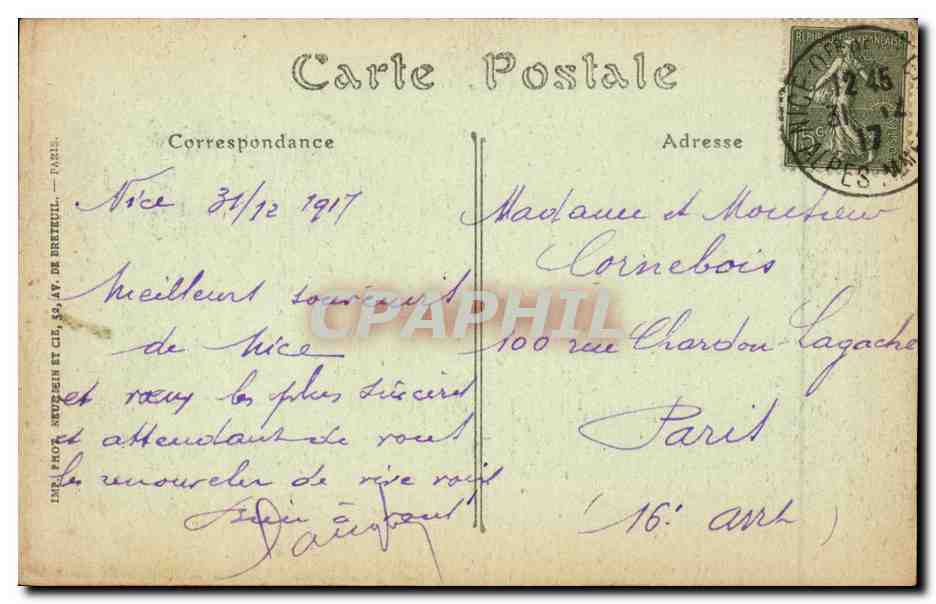 Carte Postale
Correspondance
Adresse
IMP. PHOT. NEURDEIN ET CIE, 52, AV. DE BRETEUIL. — PARIS.
RÉPUBLIQUE FRANÇAISE
15c
NICE
12 45
31 12
17
ALPES MMES
Nice 31/12 1917
Meilleurs souvenirs
de Nice
et vœux les plus sincères
et attendant de vous
les renouveler de vive voix
à vous
Madame et Monsieur
Cornebois
100 rue Chardon-Lagache
Paris
(16e arrt)
CPAPHIL